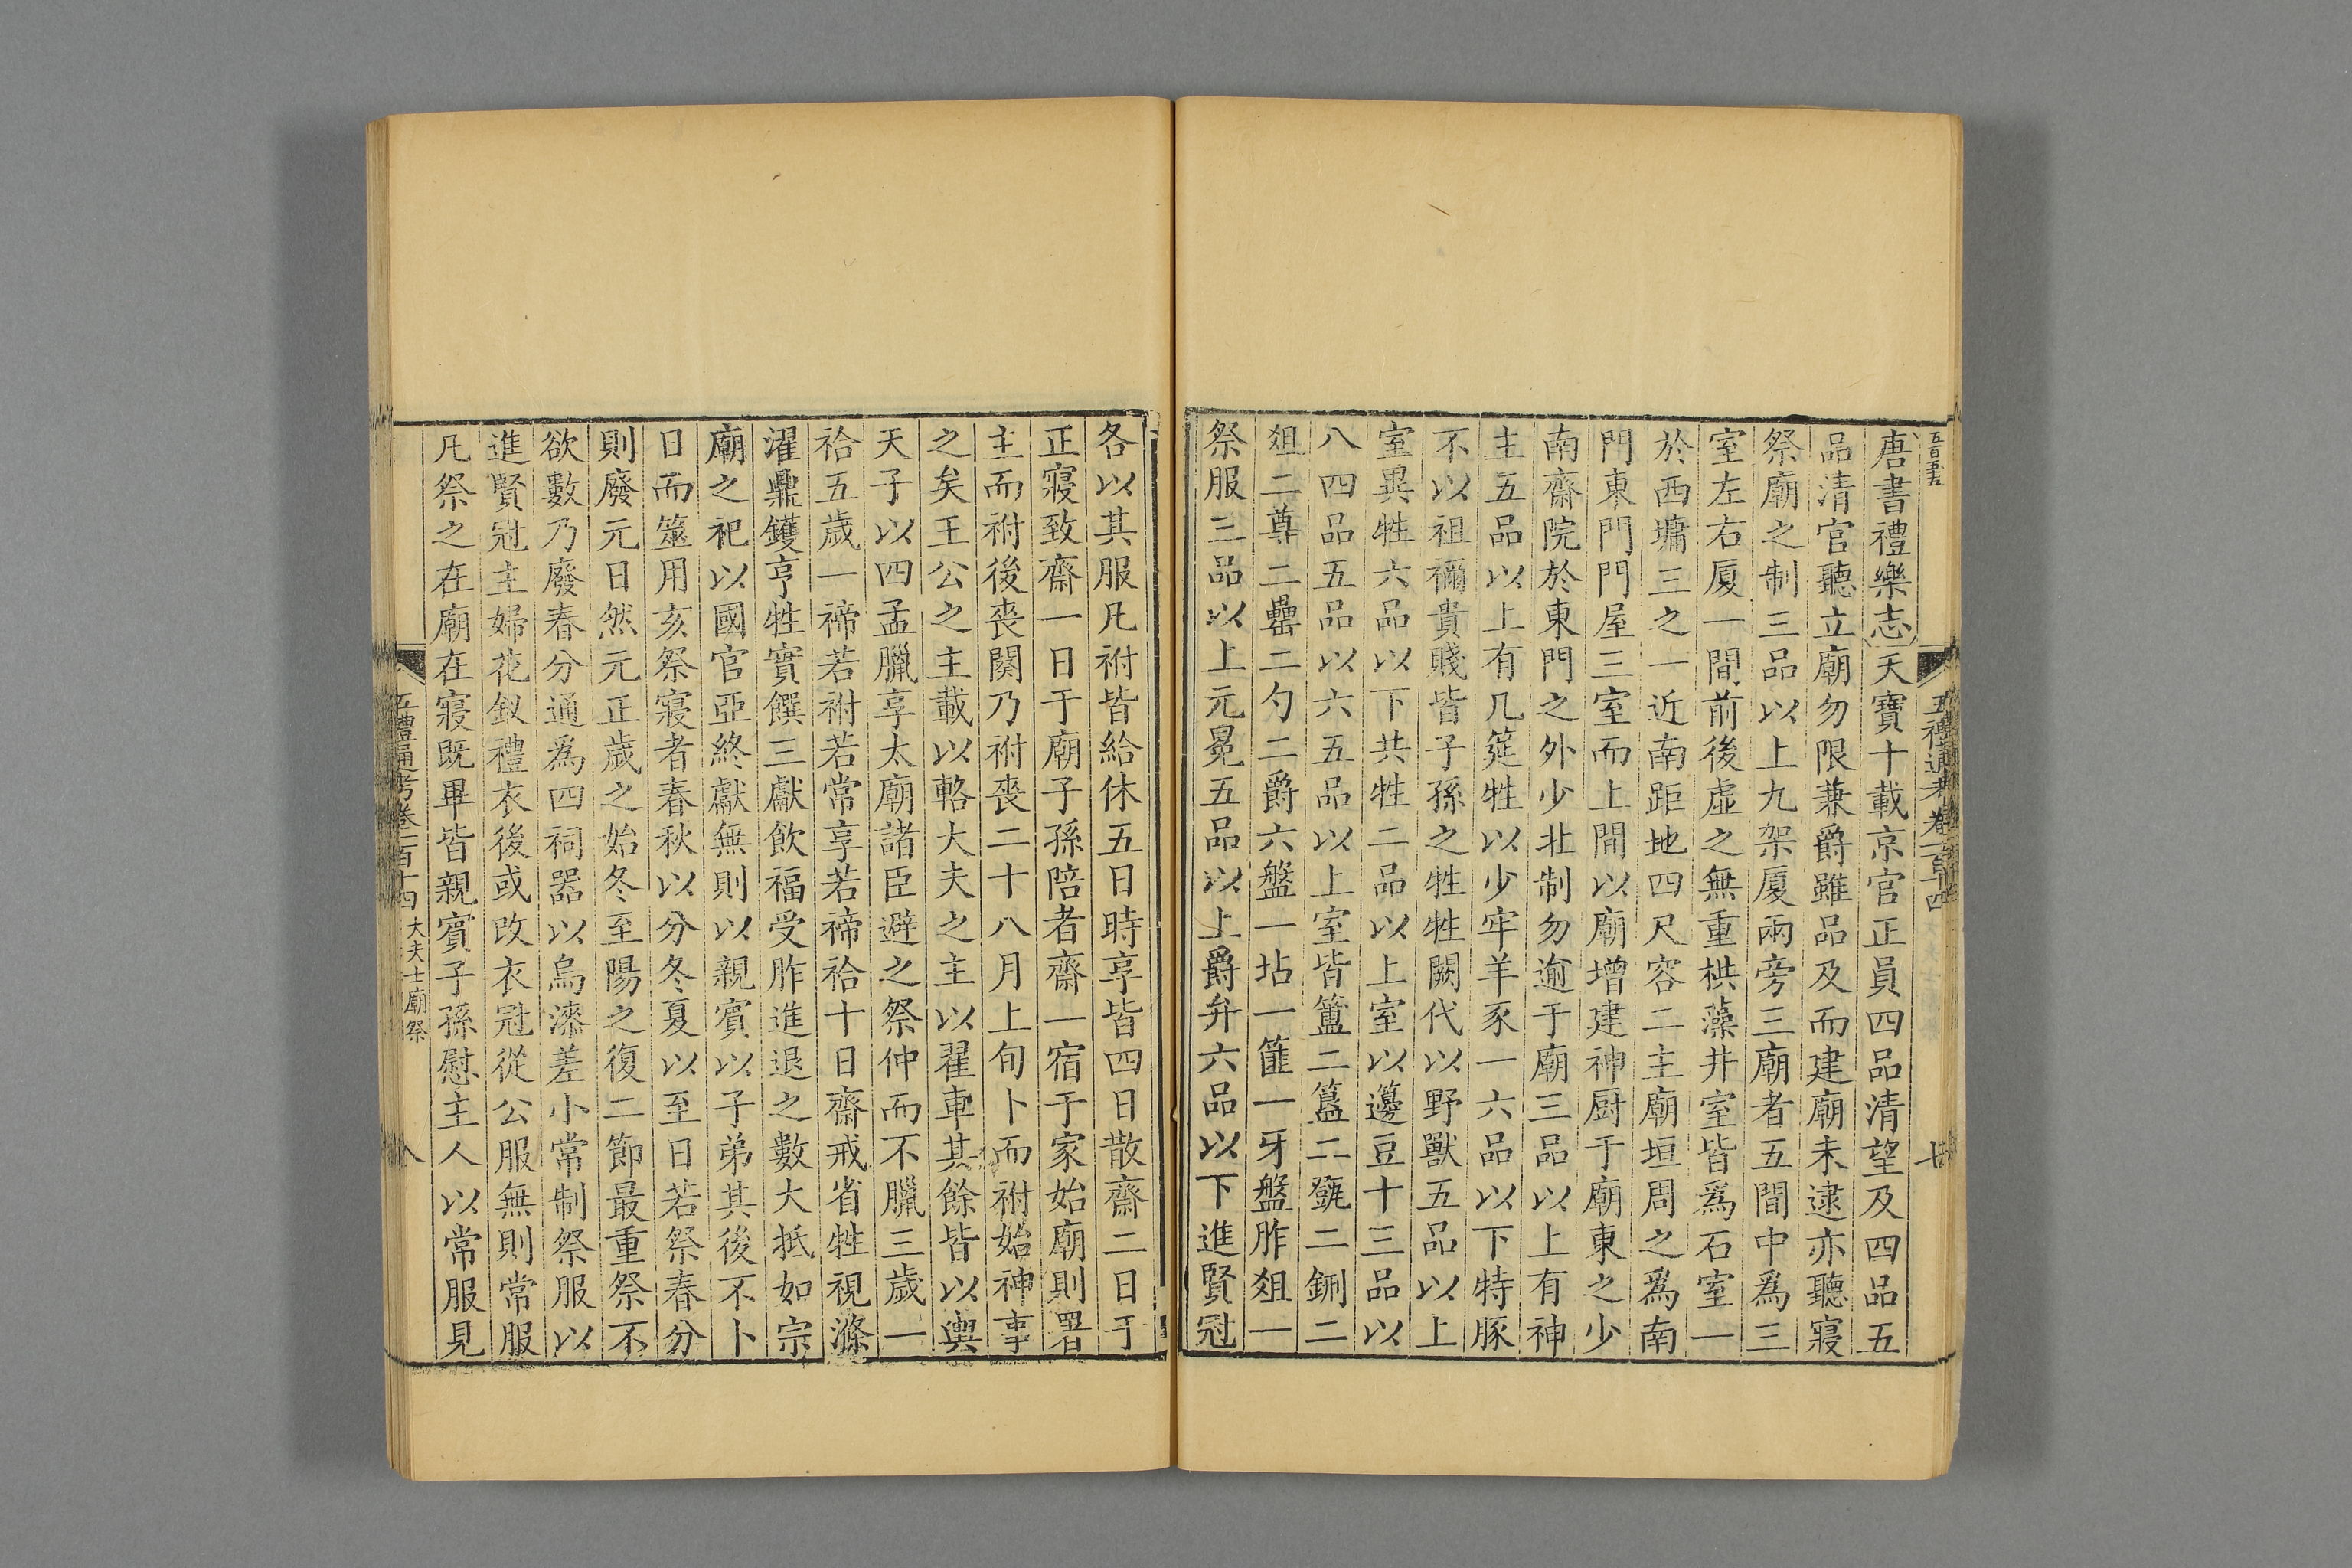 唐書禮樂志天寶十載京官正員四品清望及四品五
品清官聽立廟勿限兼爵雖品及而建廟未逮亦聽寢
祭廟之制三品以上九架厦兩旁三廟者五間中爲三
室左右厦一間前後虛之無重栱藻井室皆爲石室一
於西墉三之一近南距地四尺容二主廟垣周之爲南
門東門門屋三室而上間以廟增建神厨于廟東之少
南齋院於東門之外少北制勿逾于廟三品以上有神
主五品以上有几筵牲以少牢羊豕一六品以下特豚
不以祖禰貴賤皆子孫之牲牲闕代以野獸五品以上
室異牲六品以下共牲二品以上室以籩豆十三品以
八四品五品以六五品以上室皆簠二簋二㽅二鉶二
俎二尊二罍二勺二爵六盤一坫一篚一牙盤胙俎一
祭服三品以上元冕五品以上爵弁六品以下進賢冠
各以其服凡祔皆給休五日時享皆四日散齋二日于
正寢致齋一日于廟子孫陪者齋一宿于家始廟則署
主而祔後喪闋乃祔喪二十八月上旬卜而祔始神事
之矣王公之主載以輅大夫之主以翟車其餘皆以輿
天子以四孟臘享太廟諸臣避之祭仲而不臘三歲一
祫五歲一禘若祔若常享若禘祫十日齋戒省牲視滌
濯鼎鑊亨牲實饌三獻飲福受胙進退之數大抵如宗
廟之祀以國官亞終獻無則以親賓以子弟其後不卜
日而筮用亥祭寢者春秋以分冬夏以至日若祭春分
則廢元日然元正歲之始冬至陽之復二節最重祭不
欲數乃廢春分通爲四祠器以烏漆差小常制祭服以
進賢冠主婦花釵禮衣後或改衣冠從公服無則常服
凡祭之在廟在寢既畢皆親賓子孫慰主人以常服見
五禮通考卷一百十四 大夫士廟祭 八